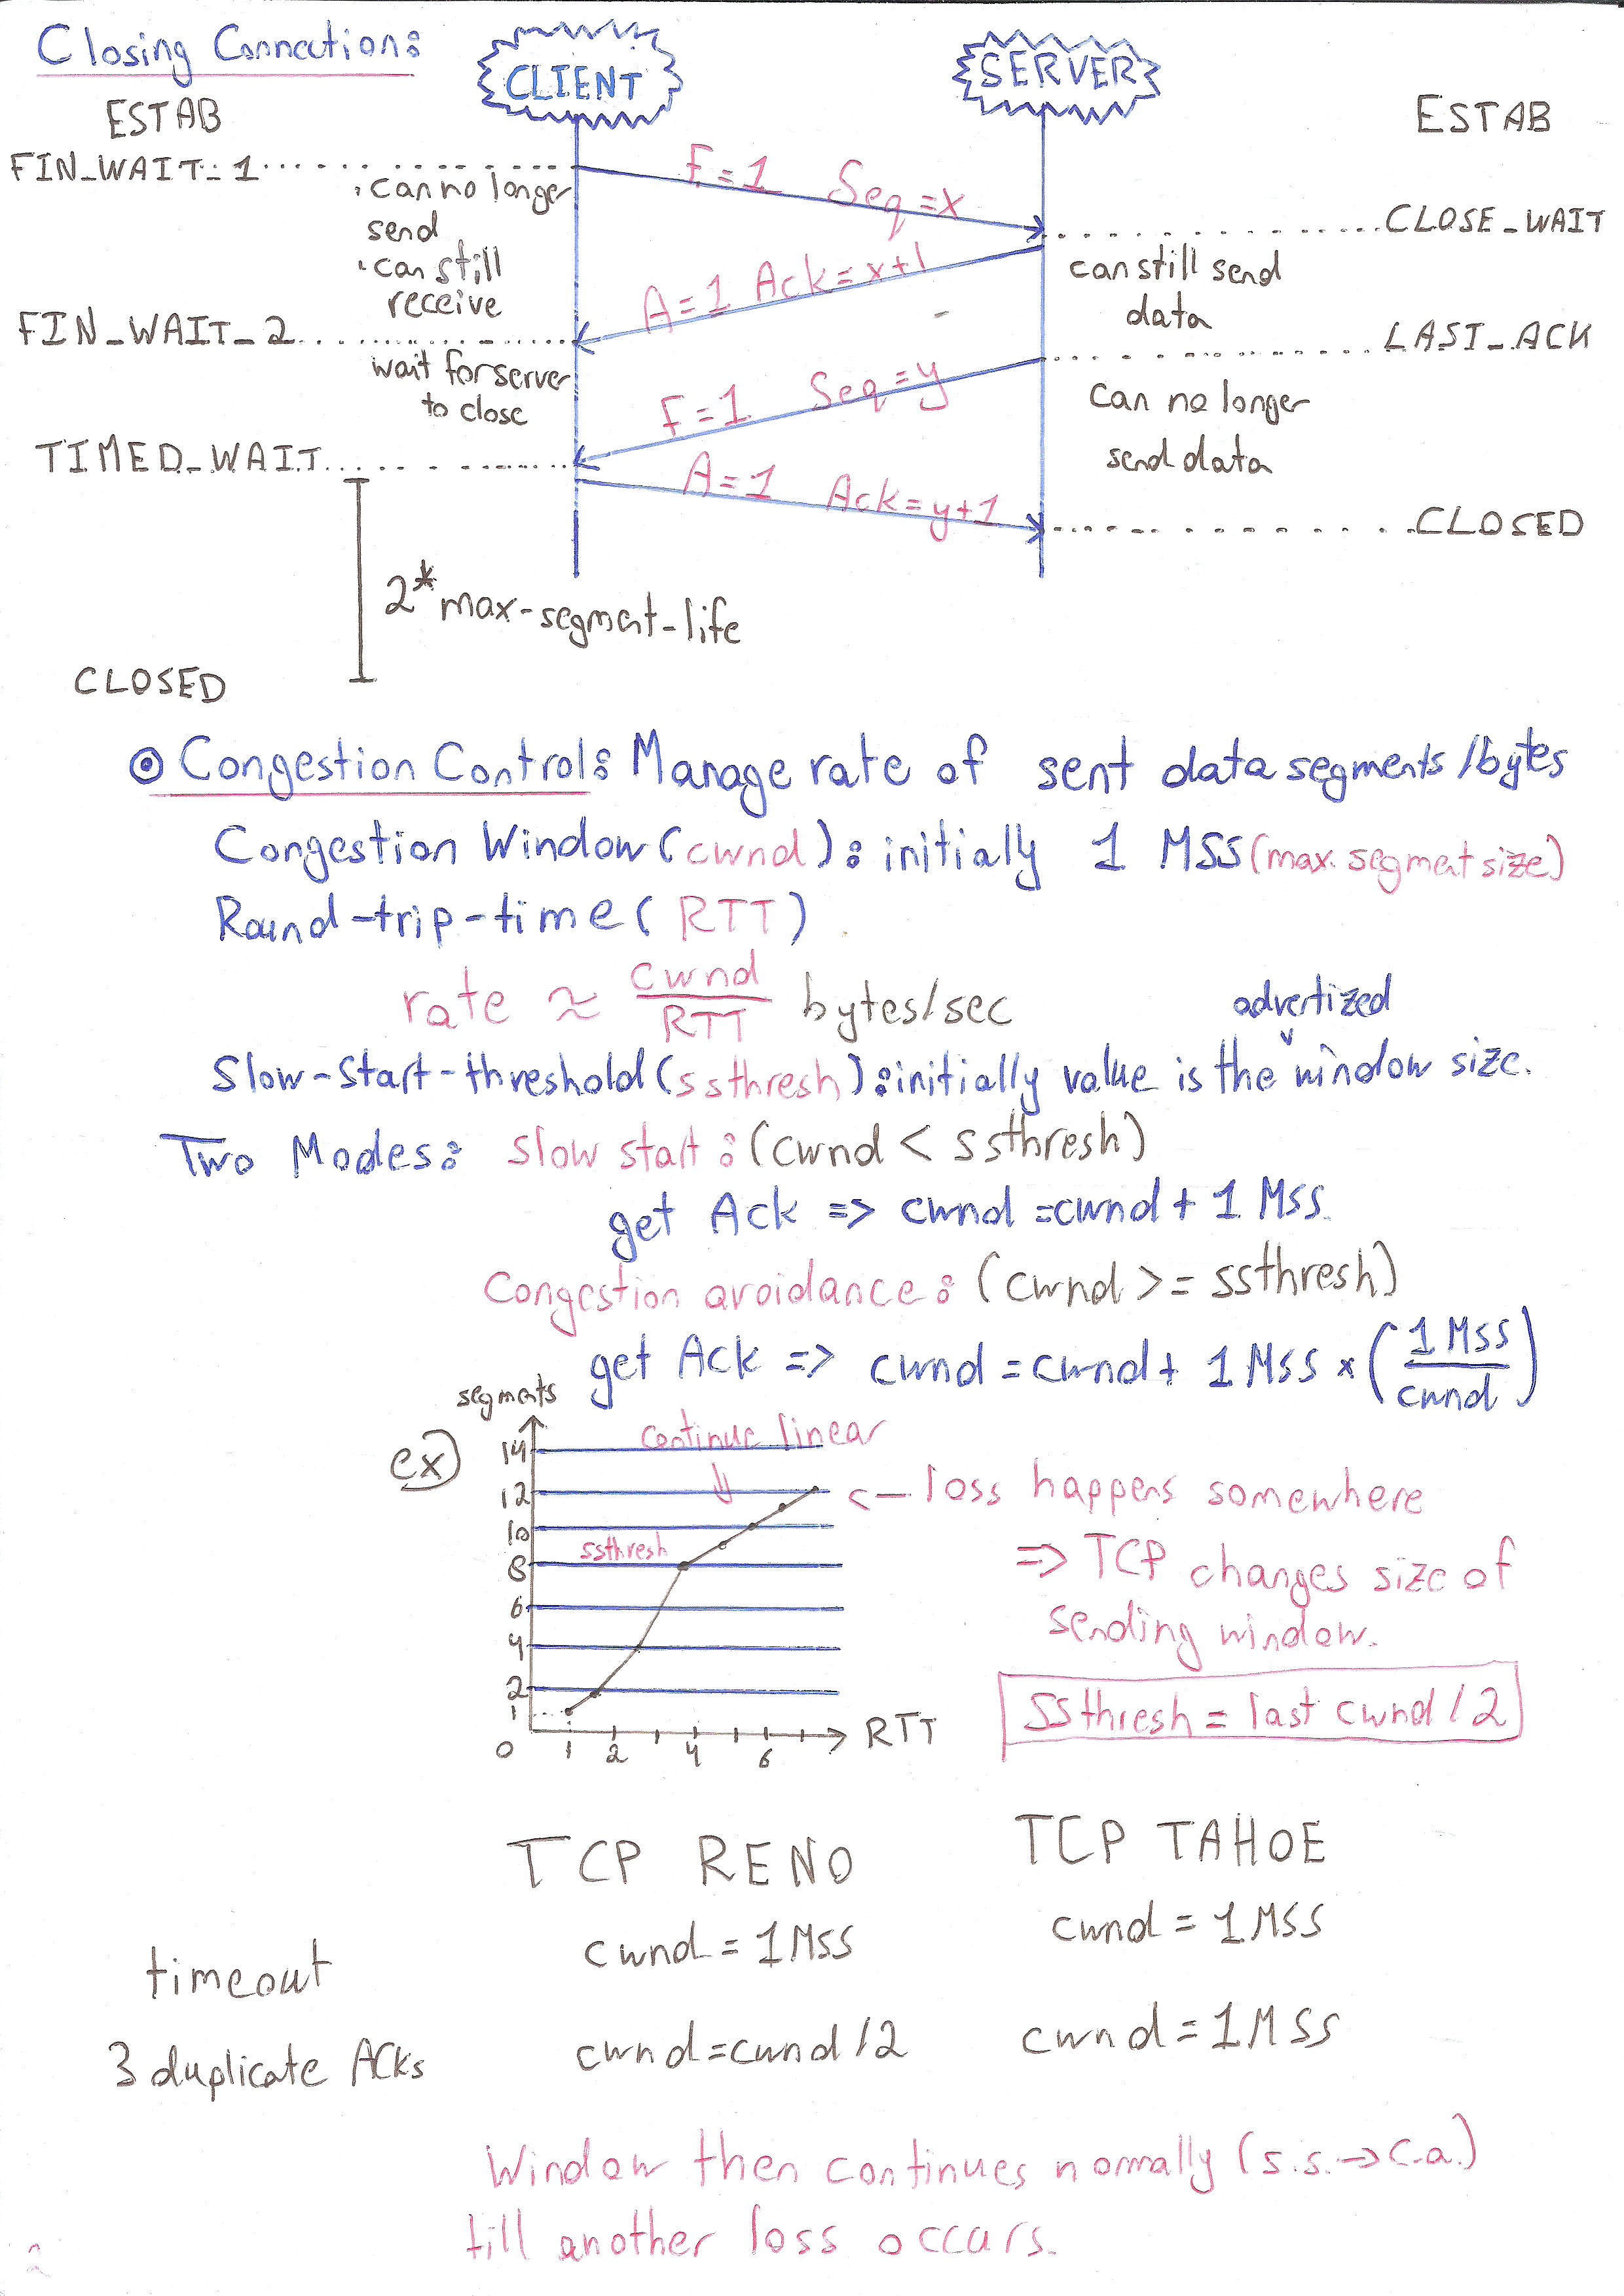 Closing Connection:
CLIENT
SERVER
ESTAB
ESTAB
FIN_WAIT_1
F=1 Seq=x
• can no longer
send
• can still
receive
CLOSE_WAIT
can still send
data
A=1 Ack=x+1
FIN_WAIT_2
wait for server
to close
LAST_ACK
can no longer
send data
F=1 Seq=y
TIMED_WAIT
A=1 Ack=y+1
CLOSED
2*max-segment-life
CLOSED
Congestion Control: Manage rate of sent data segments/bytes
Congestion Window (cwnd): initialy 1 MSS (max. segment size)
Round-trip-time (RTT)
rate ≈ cwnd/RTT bytes/sec
advertized
Slow-Start-threshold (ssthresh): initially value is the window size.
Two Modes: slow start: (cwnd < ssthresh)
get Ack => cwnd = cwnd + 1 MSS.
Congestion avoidance: (cwnd >= ssthresh)
get Ack => cwnd = cwnd + 1 MSS × (1 MSS/cwnd)
segments
ex)
continue linear
14
12
10
8
6
4
2
1
0
ssthresh
1 2 4 6 RTT
<- loss happens somewhere
=> TCP changes size of
sending window.
ssthresh = last cwnd / 2
TCP RENO
TCP TAHOE
timeout
cwnd = 1MSS
cwnd = 1MSS
3 duplicate ACKs
cwnd = cwnd / 2
cwnd = 1MSS
Window then continues normally (s.s. -> c.a.)
till another loss occurs.